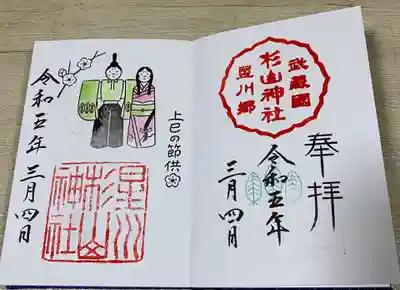 奉拝
武蔵國
杉山神社
星川郷
令和五年
三月四日
上巳の節供
星川
杉山
神社
令和五年
三月四日